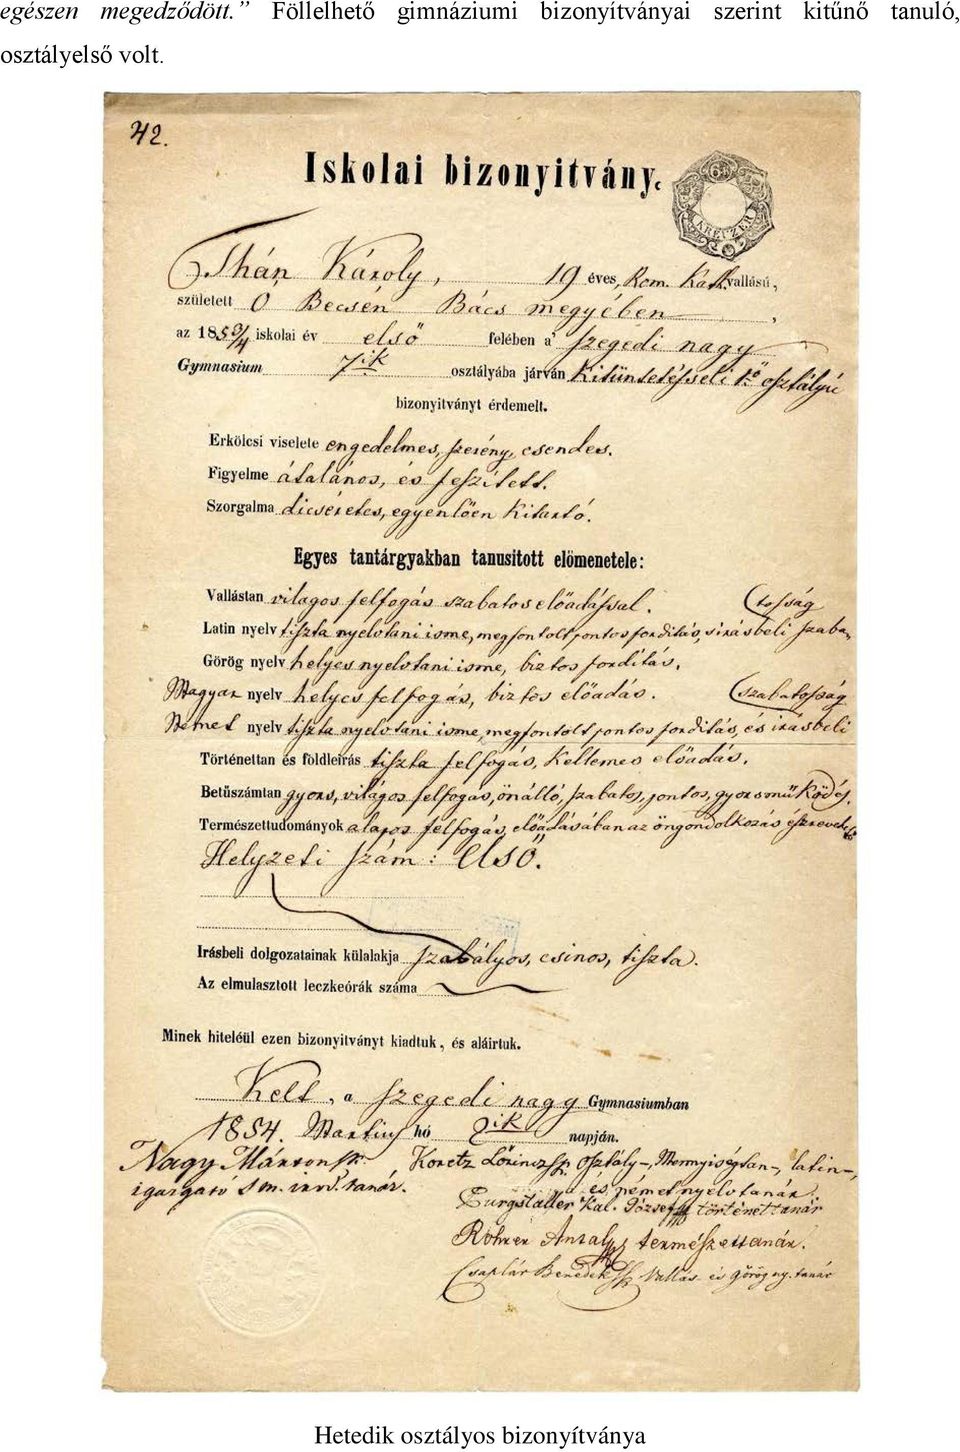 egészen megedződött.” Föllelhető gimnáziumi bizonyítványai szerint kitűnő tanuló,
osztályelső volt.
42.
Iskolai bizonyitvány.
6 KREUZER
Thán Károly, 19 éves, Rom. Kath. vallású,
született Ó Becsén Bács megyében,
az 1853/4 iskolai év első felében a' szegedi nagy
Gymnasium 7ik osztályába járván Kitüntetésseli 1ő osztályú
bizonyitványt érdemelt.
Erkölcsi viselete engedelmes, szerény, csendes.
Figyelme átalános, és feszített.
Szorgalma dicséretes, egyenlően kitartó.
Egyes tantárgyakban tanusitott elömenetele:
Vallástan világos felfogás szabatos előadással.
Latin nyelv tiszta nyelvtani isme, megfontolt pontos forditás, s irásbeli szaba„
(tosság
Görög nyelv helyes nyelvtani isme, biztos forditás.
Magyar nyelv helyes felfogás, biztos előadás.
Német nyelv tiszta nyelvtani isme, megfontolt pontos forditás, és irásbeli
(szabatosság
Történettan és földleirás tiszta felfogás, kellemes előadás.
Betüszámtan gyors, világos felfogás, önálló, szabatos, pontos, gyors működés.
Természettudományok alapos felfogás, előadásában az öngondolkozás észrevehető
Helyzeti szám: Első.
Irásbeli dolgozatainak külalakja szabályos, csinos, tiszta.
Az elmulasztott leczkeórák száma
Minek hiteléül ezen bizonyitványt kiadtuk, és aláirtuk.
Kelt, a szegedi nagy Gymnasiumban
1854. Martius hó 2ik napján.
Nagy Márton sk.
igazgató s m. irod. tanár.
Koretz Lőrincz sk. osztály-, Mennyiségtan-, latin-,
és német nyelv tanár.
Purgstaller Kal. József sk történet tanár
Röhrer Antal sk természettanár.
Csaplár Benedek sk vallás és görög ny. tanár
Hetedik osztályos bizonyítványa